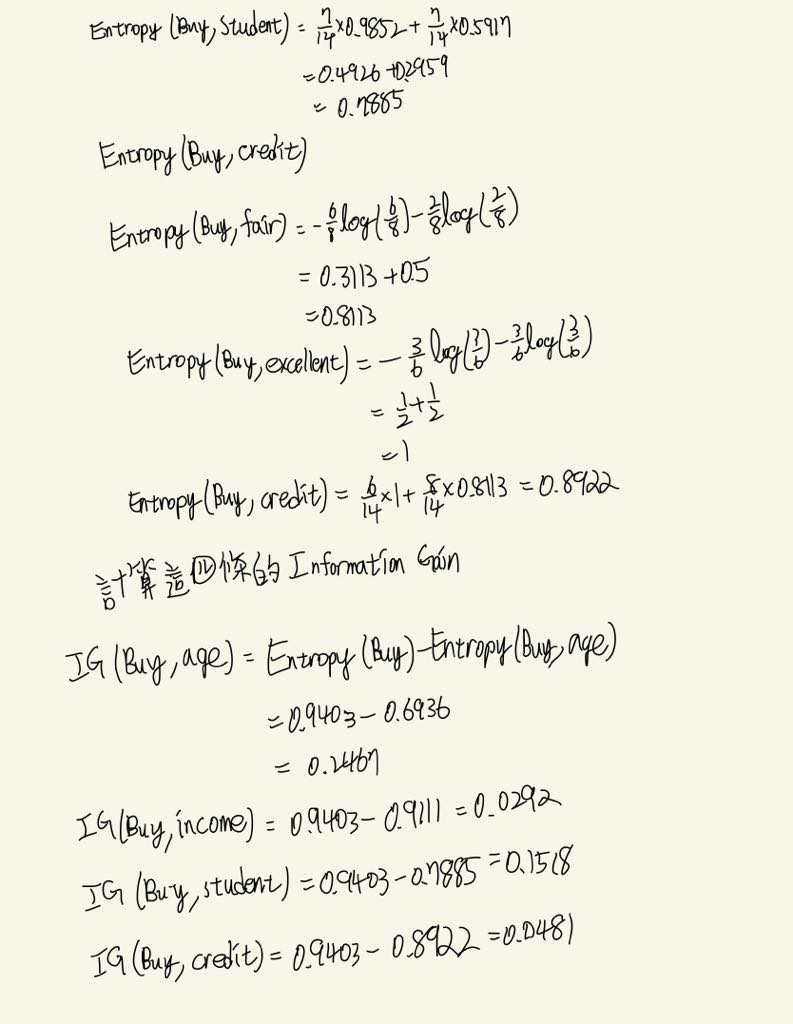 Entropy (Buy, Student) = 7/14 × 0.9852 + 7/14 × 0.5917
= 0.4926 + 0.2959
= 0.7885
Entropy (Buy, credit)
Entropy (Buy, fair) = - 6/8 log(6/8) - 2/8 log(2/8)
= 0.3113 + 0.5
= 0.8113
Entropy (Buy, excellent) = - 3/6 log(3/6) - 3/6 log(3/6)
= 1/2 + 1/2
= 1
Entropy (Buy, credit) = 6/14 × 1 + 8/14 × 0.8113 = 0.8922
計算這四條的 Information Gain
IG (Buy, age) = Entropy (Buy) - Entropy (Buy, age)
= 0.9403 - 0.6936
= 0.2467
IG (Buy, income) = 0.9403 - 0.9111 = 0.0292
IG (Buy, student) = 0.9403 - 0.7885 = 0.1518
IG (Buy, credit) = 0.9403 - 0.8922 = 0.0481